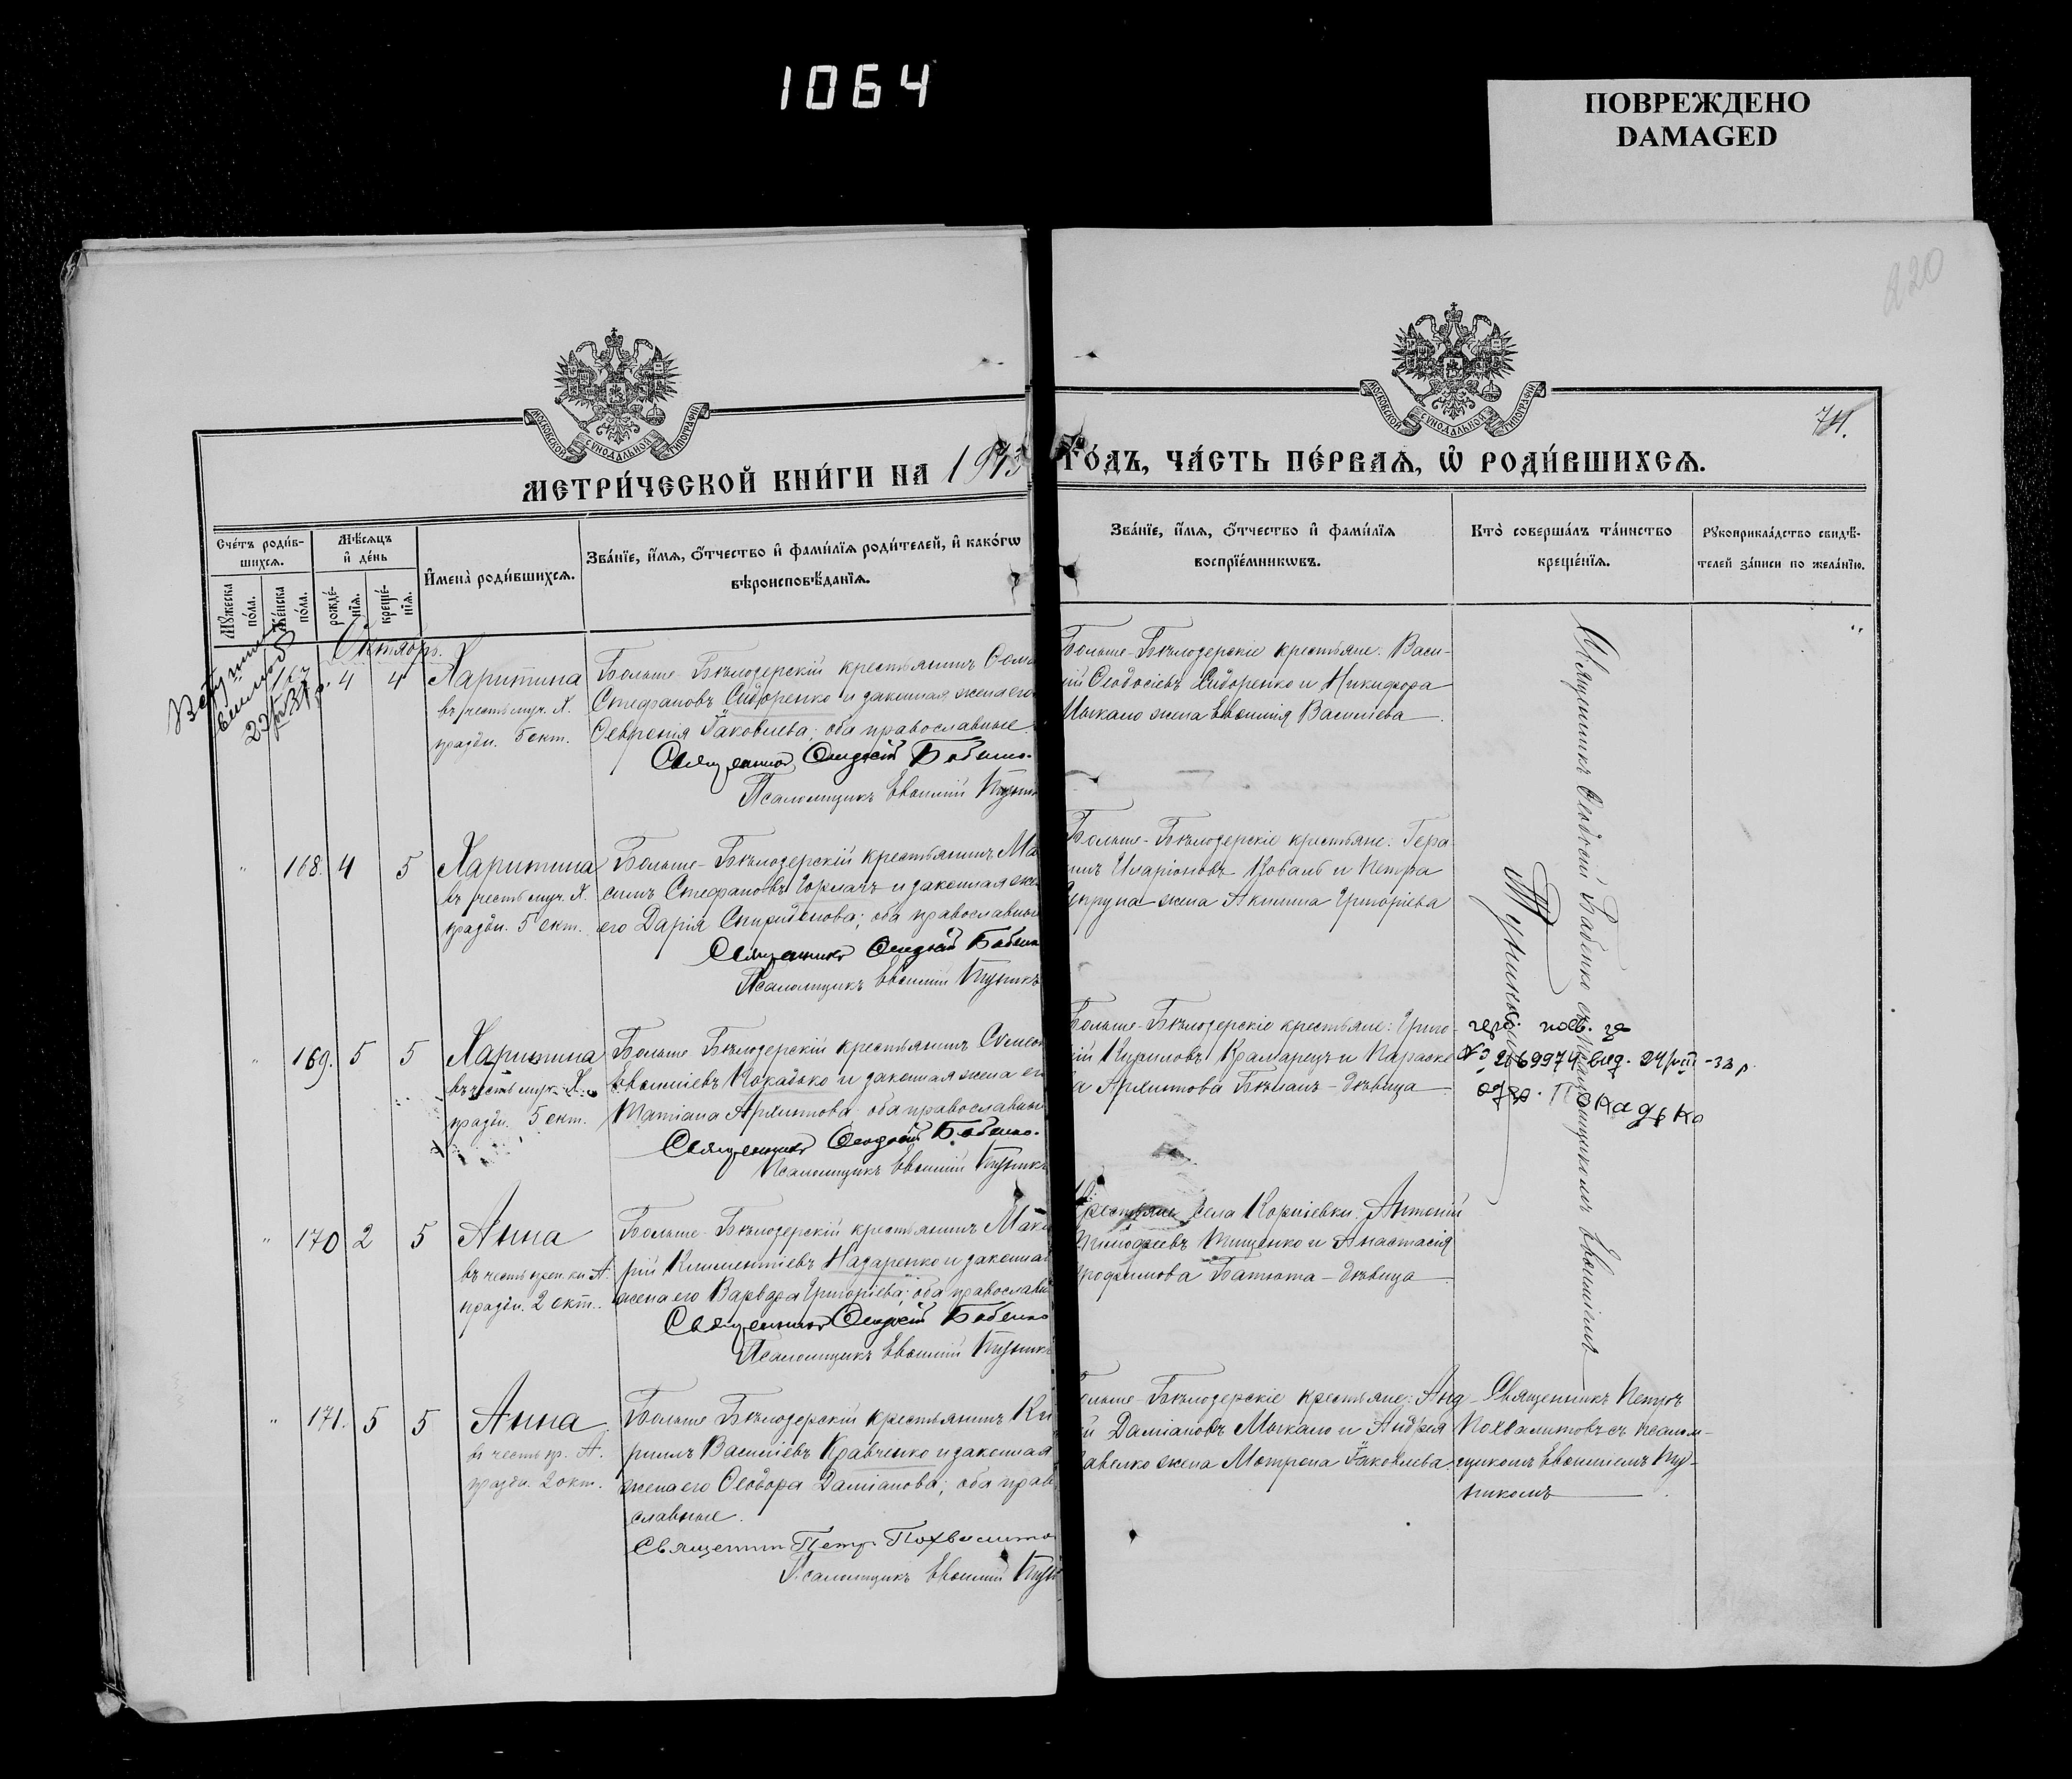 1064
ПОВРЕЖДЕНО
DAMAGED
220
74.
МОСКОВСКОЙ СѴНОДАЛЬНОЙ ТИПОГРАФІИ
МОСКОВСКОЙ СѴНОДАЛЬНОЙ ТИПОГРАФІИ
МЕТРИ́ЧЕСКОЙ КНИ́ГИ НА 1913
ГО́ДЪ, ЧА́СТЬ ПЕ́РВАѦ, Ѡ҆ РОДИ́ВШИХСѦ.
Сче́тъ роди́в-
шихсѧ.
Мꙋ́жеска
по́ла.
Же́нска
по́ла.
Мѣ́сѧцъ
и҆ де́нь
рожде́-
нїѧ.
креще́-
нїѧ.
И҆мена̀ роди́вшихсѧ.
Зва́нїе, и҆́мѧ, ѻ҆́тчество и҆ фами́лїѧ роди́телей, и҆ како́гѡ
вѣроисповѣ́данїѧ.
Зва́нїе, и҆́мѧ, ѻ҆́тчество и҆ фами́лїѧ
воспрїе́мникѡвъ.
Кто̀ соверша́лъ та́инство
креще́нїѧ.
Рꙋкоприкла́дство свидѣ́-
телей за́писи по жела́нїю.
Октябрь.
167
4 4
Харитина
въ честь муч. Х.
праздн. 5 окт.
Больше-Бѣлозерскій крестьянинъ
Стефановъ Сидоренко и законная жена его
Февронія Іаковлева; оба православные.
Священник Феодосій Бабенко.
Псаломщикъ Евѳимій
Больше-Бѣлозерскіе крестьяне: Васи-
лій Ѳеодосіевъ Сидоренко и Никифора
Мыкало жена Евѳимія Васильева
Священникъ Ѳеодосій Бабенко съ псаломщикомъ Евѳиміемъ
" 168. 4 5
Харитина
въ честь муч. Х.
праздн. 5 окт.
Больше-Бѣлозерскій крестьянинъ Ма
симъ Стефановъ Горлачъ и законная жен
его Дарія Спиридонова; оба православны
Священникъ Феодосій Бабенко
Псаломщикъ Евѳимій
Больше-Бѣлозерскіе крестьяне: Гера-
симъ Иларіоновъ Коваль и Петра
жена Акилина Григоріева
" 169. 5 5
Харитина
въ честь муч. Х.
праздн. 5 окт.
Больше-Бѣлозерскій крестьянинъ Симеон
Евѳиміевъ Покадько и законная жена ег
Татіана; оба православны
Священникъ Феодосій Бабенко.
Псаломщикъ Евѳимій
Больше-Бѣлозерскіе крестьяне: Григо-
рій Кириловъ Крамарецъ и Параске
Бѣланъ - дѣвица
вид. 24/VIII-33 р.
Покадько
" 170 2 5
Анна
въ честь А.
праздн. 2 окт.
Больше-Бѣлозерскій крестьянинъ Мака
рій Климентіевъ Назаренко и законная
жена его Варвара Григоріева; оба православн
Священник Феодосій Бабенко
Псаломщикъ Евѳимій
Крестьяне села Корніевки: Антоній
Тимоѳеевъ Тищенко и Анастасія
Трофимова Батюта - дѣвица
" 171. 5 5
Анна
въ честь пр. А.
праздн. 2 окт.
Больше-Бѣлозерскій крестьянинъ Ки
риллъ Васильевъ Кравченко и законная
жена его Ѳеодора Даміанова; оба право
славные.
Священник Петр Похвалитов
Псаломщикъ Евѳимій
Больше-Бѣлозерскіе крестьяне: Анд
й Даміановъ Мыкало и Андрея
Павелко жена Мотрона Іаковлева.
Священникъ Петръ
Похвалитовъ съ псалом-
щикомъ Евѳиміемъ